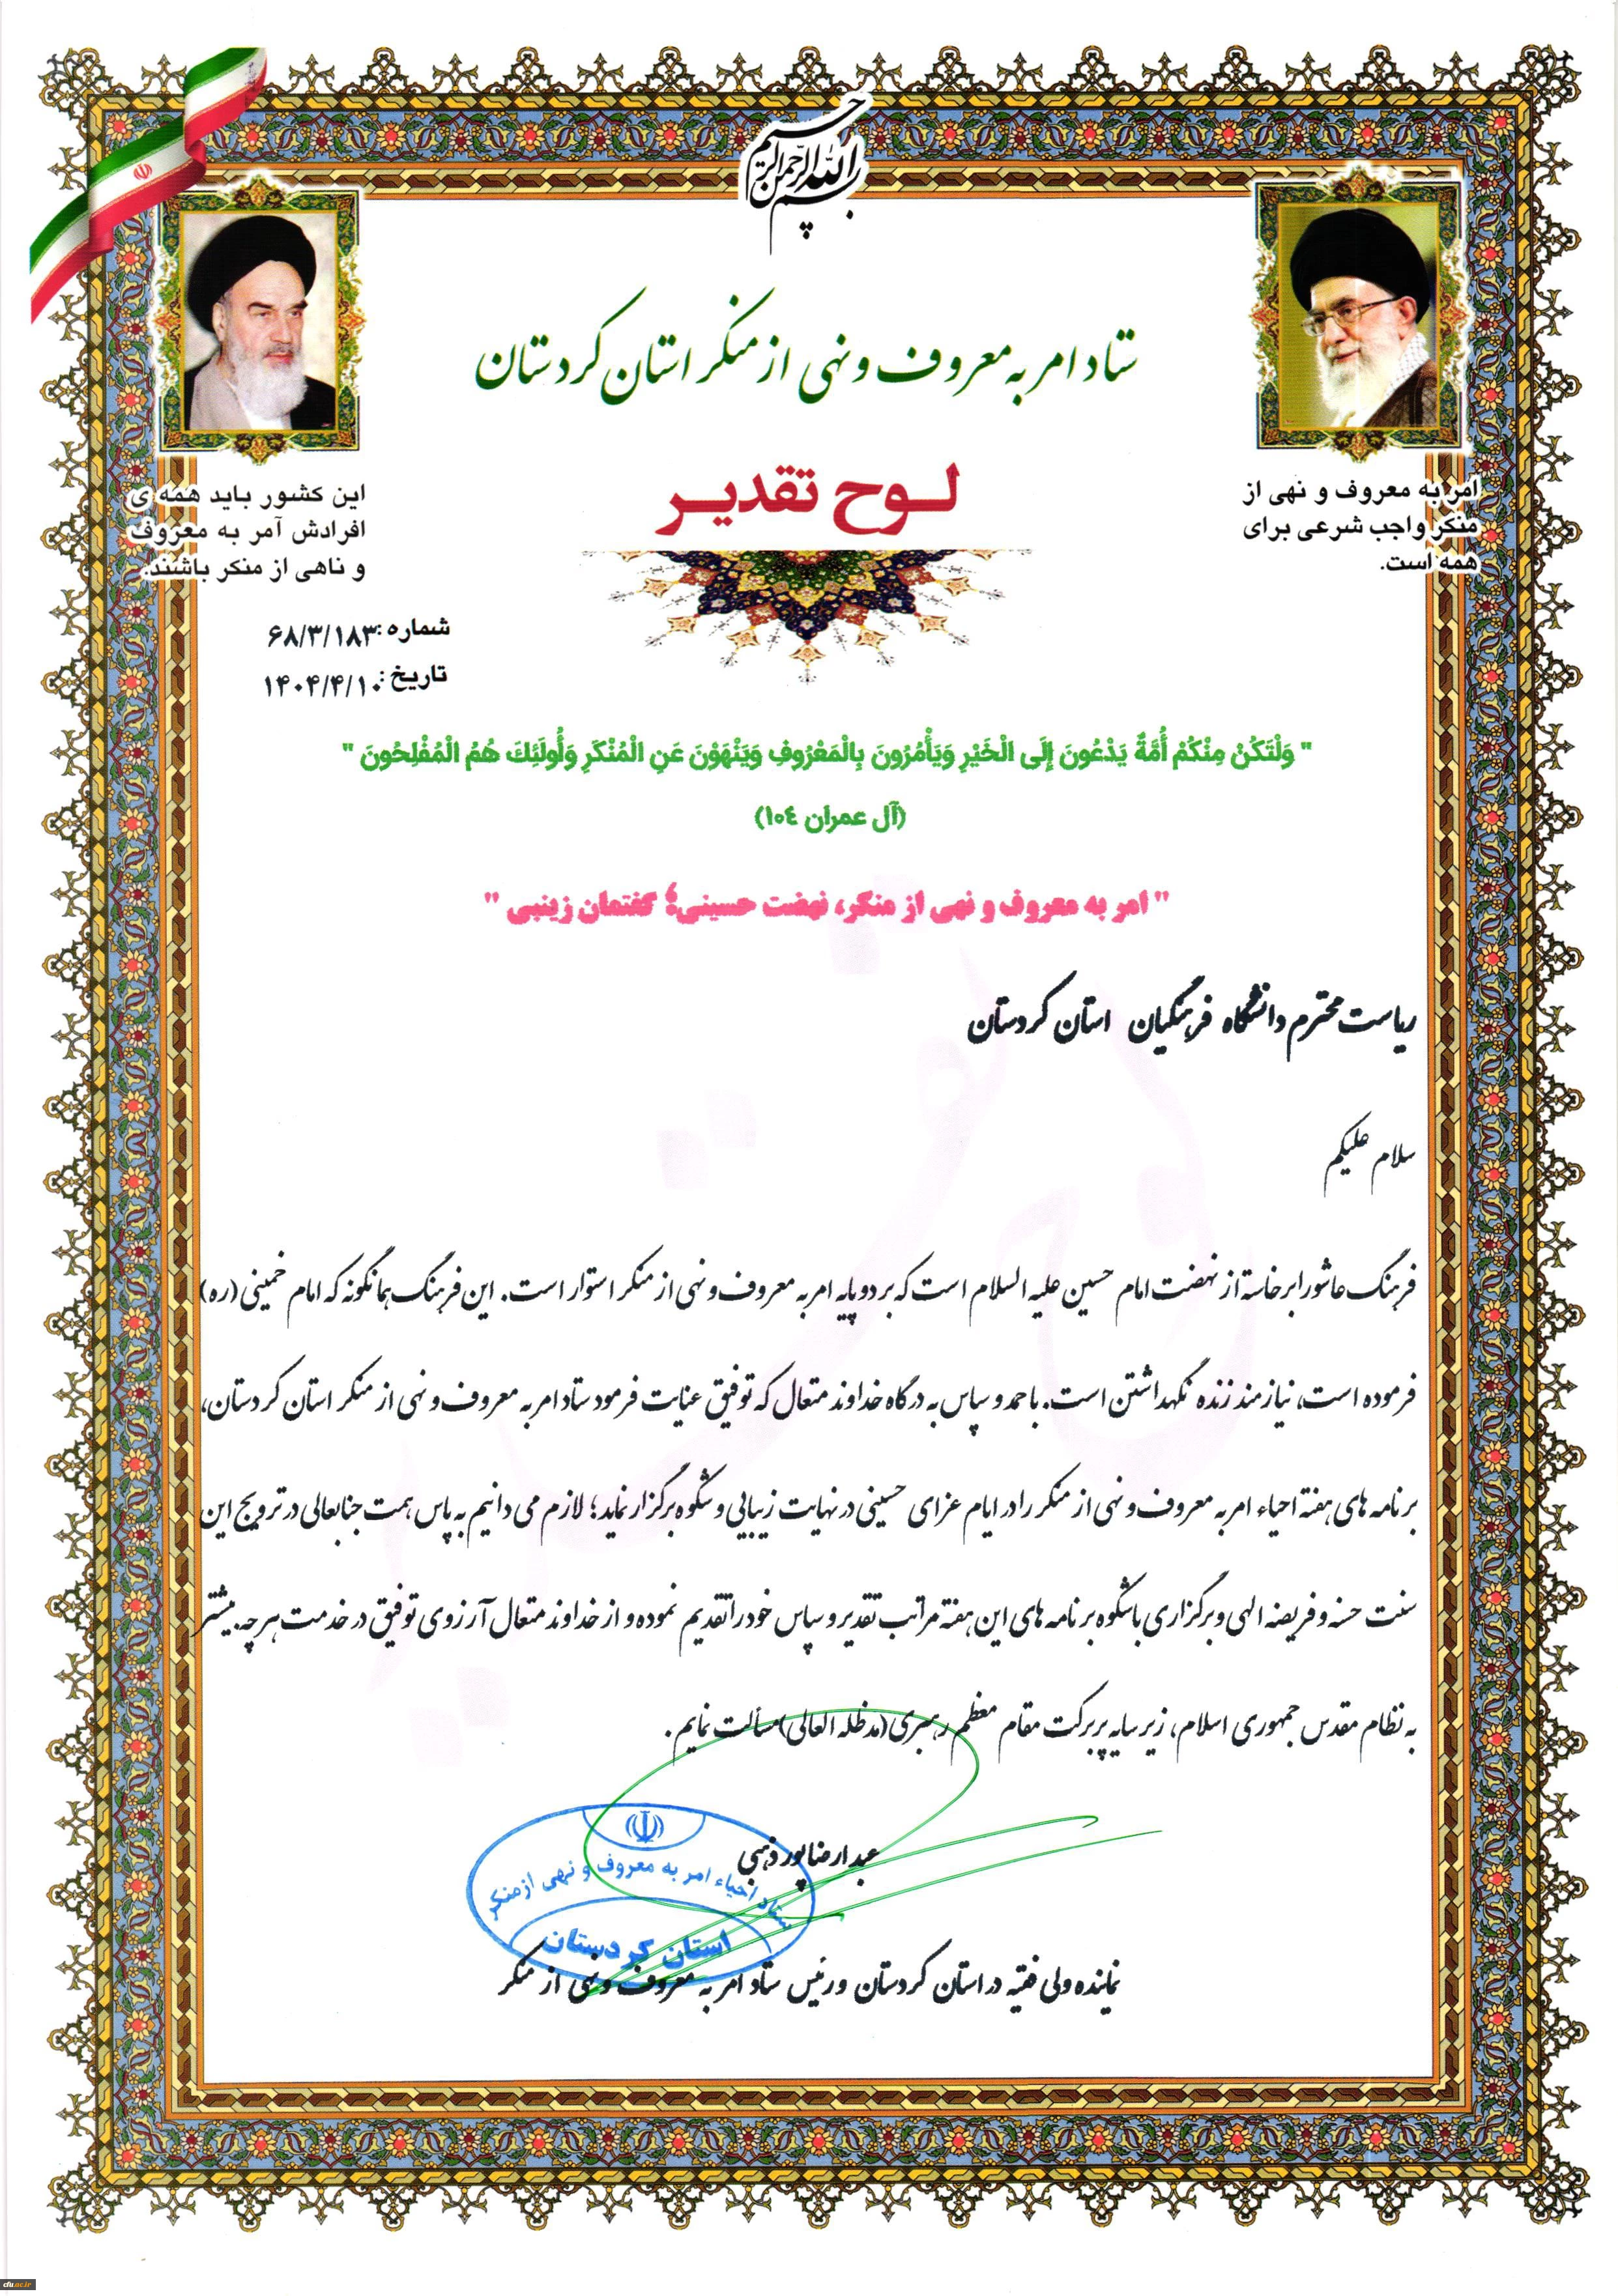 بسم الله الرحمن الرحیم
ستاد امر به معروف و نهی از منکر استان کردستان
لوح تقدیر
امر به معروف و نهی از
منکر واجب شرعی برای
همه است.
این کشور باید همه ی
افرادش آمر به معروف
و ناهی از منکر باشند.
شماره: ۶۸/۳/۱۸۳
تاریخ: ۱۴۰۴/۴/۱۰
" وَلْتَكُنْ مِنْكُمْ أُمَّةٌ يَدْعُونَ إِلَى الْخَيْرِ وَيَأْمُرُونَ بِالْمَعْرُوفِ وَيَنْهَوْنَ عَنِ الْمُنْكَرِ وَأُولَئِكَ هُمُ الْمُفْلِحُونَ "
(آل عمران ١٠٤)
" امر به معروف و نهی از منکر، نهضت حسینی؛ گفتمان زینبی "
ریاست محترم دانشگاه فرهنگیان استان کردستان
سلام علیکم
فرهنگ عاشورا برخاسته از نهضت امام حسین علیه السلام است که بر دو پایه امر به معروف و نهی از منکر استوار است. این فرهنگ همانگونه که امام خمینی (ره)
فرموده است، نیازمند زنده نگهداشتن است. با حمد و سپاس به درگاه خداوند متعال که توفیق عنایت فرمود ستاد امر به معروف و نهی از منکر استان کردستان،
برنامه های هفته احیاء امر به معروف و نهی از منکر را در ایام عزای حسینی در نهایت زیبایی و شکوه برگزار نماید؛ لازم می دانیم به پاس همت جنابعالی در ترویج این
سنت حسنه و فریضه الهی و برگزاری باشکوه برنامه های این هفته مراتب تقدیر و سپاس خود را تقدیم نموده و از خداوند متعال آرزوی توفیق در خدمت هر چه بیشتر
به نظام مقدس جمهوری اسلام، زیر سایه پربرکت مقام معظم رهبری (مدظله العالی) مسألت نمایم.
عبدارضا پورذهبی
ستاد احیاء امر به معروف و نهی از منکر
استان کردستان
نماینده ولی فقیه در استان کردستان و رئیس ستاد امر به معروف و نهی از منکر
cfu.ac.ir